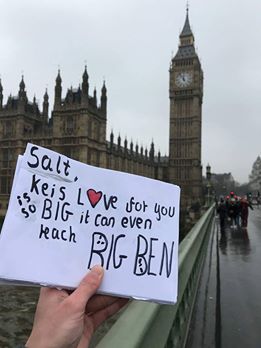 Salt,
Keis L❤ve for you
is so BIG it can even
reach BIG BEN